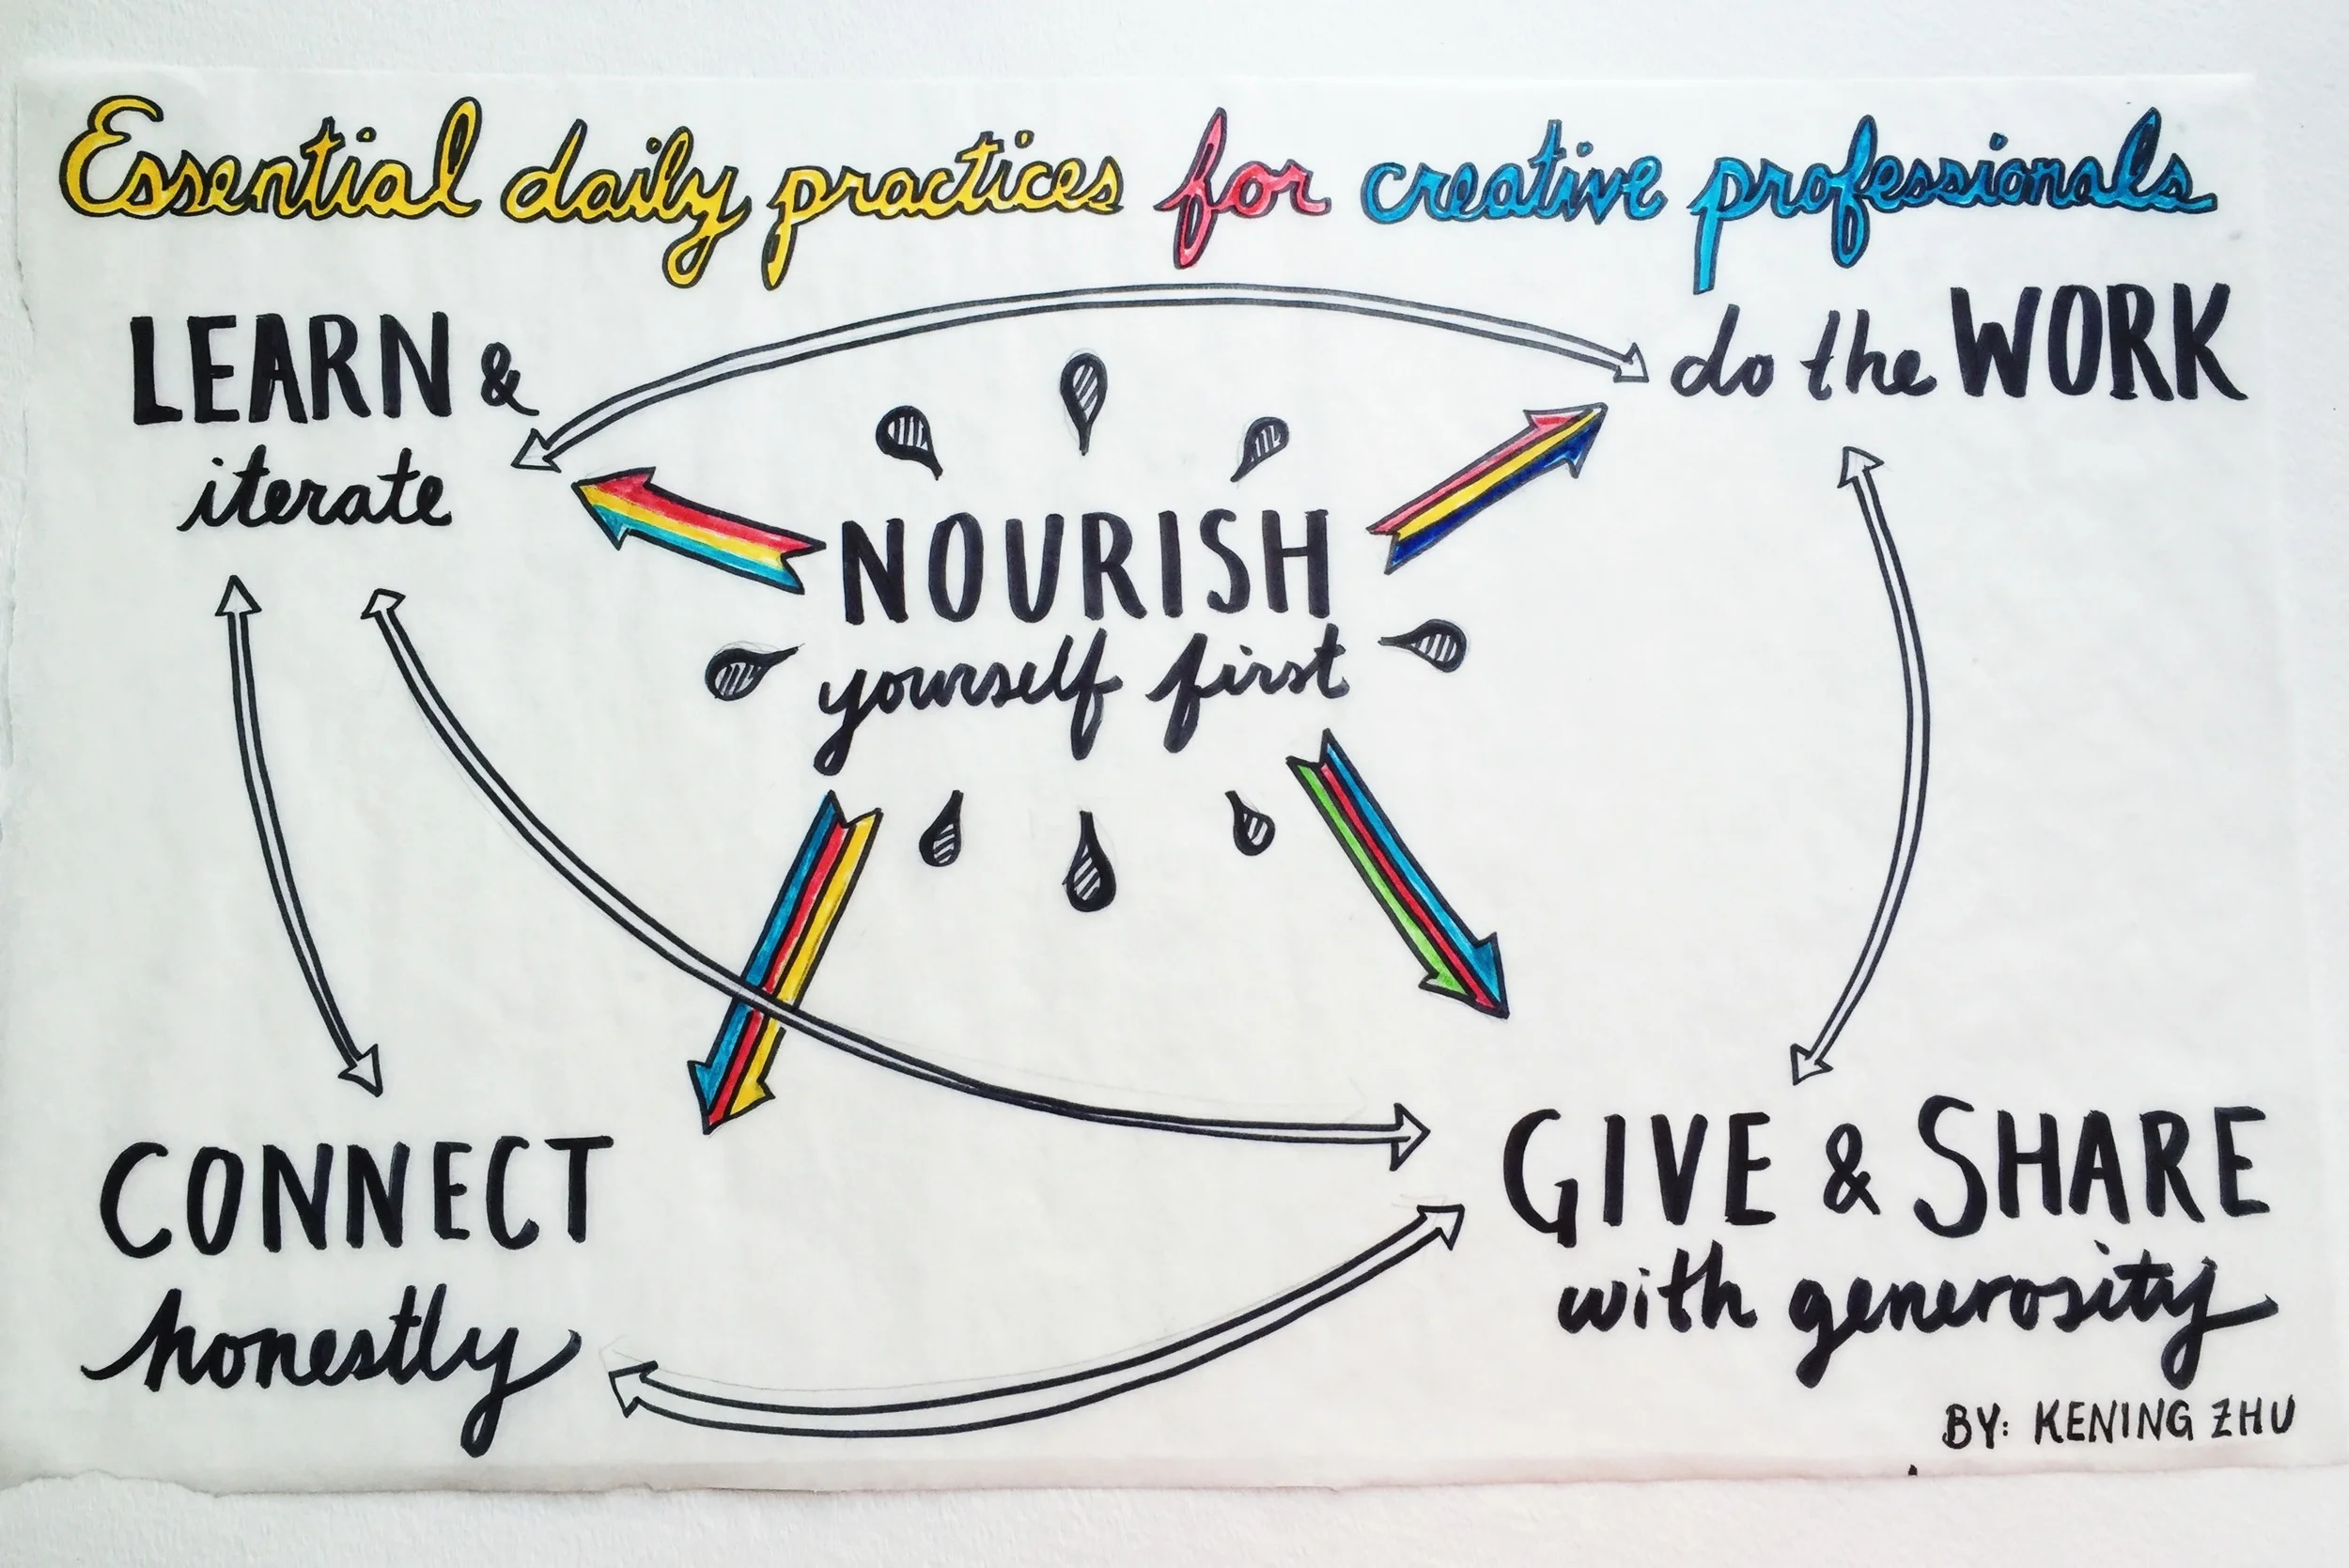 Essential daily practices for creative professionals
LEARN &
iterate
do the WORK
NOURISH
yourself first
CONNECT
honestly
GIVE & SHARE
with generosity
BY: KENING ZHU